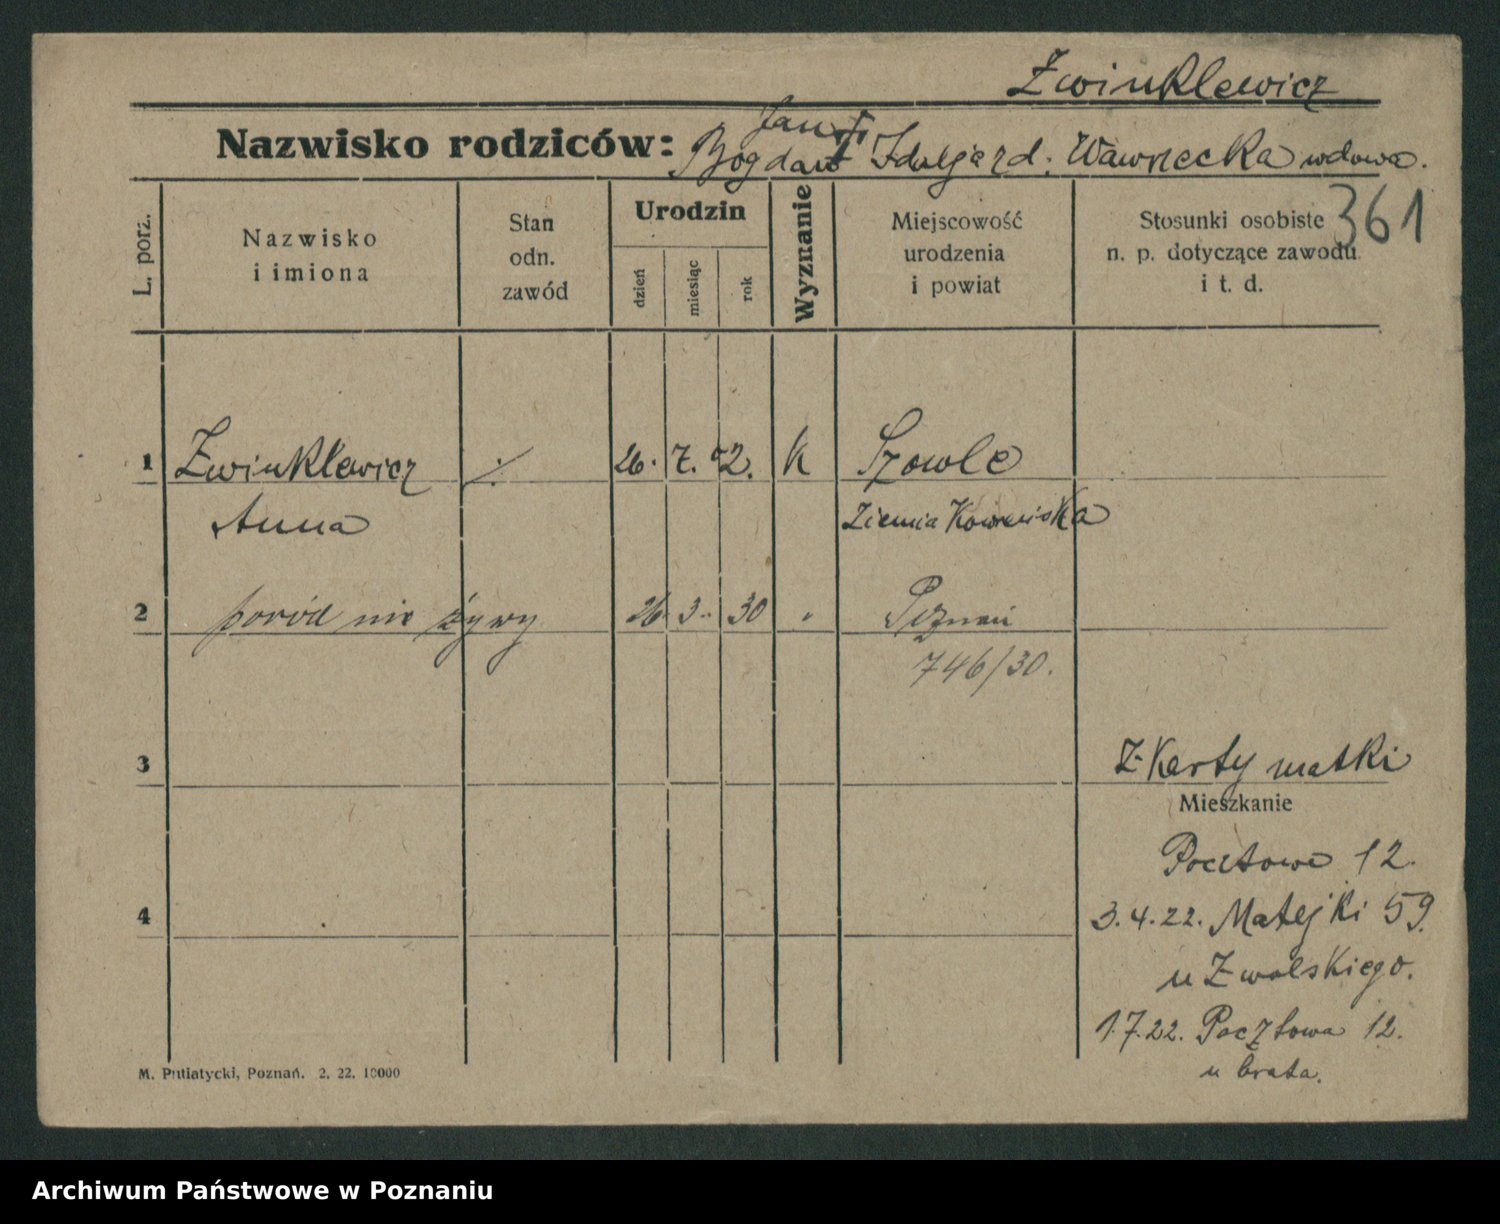 Zwinklewicz
Nazwisko rodziców:
Jan †
Bogdan † Idalja zd. Wawrzecka wdowa.
361
L. porz.
Nazwisko
i imiona
Stan
odn.
zawód
Urodzin
dzień
miesiąc
rok
Wyznanie
Miejscowość
urodzenia
i powiat
Stosunki osobiste
n. p. dotyczące zawodu
i t. d.
1 Zwinklewicz ·/· 26. 7. 02. K Szowle
Anna Ziemia Kowieńska
2 poród nie żywy 26. 3. 30 " Poznań
746/30.
3
Z Karty matki
Mieszkanie
Pocztowa 12.
4
3.4.22. Matejki 59.
u Zwolskiego.
1.7.22. Pocztowa 12.
u brata.
M. Putiatycki, Poznań. 2. 22. 10000
Archiwum Państwowe w Poznaniu